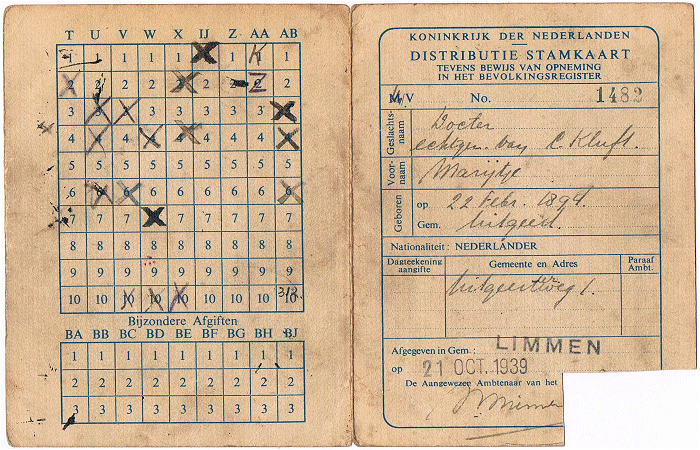 T U V W X IJ Z AA AB
1 1 1 1 1 1 1 1 1
2 2 2 2 2 2 2 2 2
3 3 3 3 3 3 3 3 3
4 4 4 4 4 4 4 4 4
5 5 5 5 5 5 5 5 5
6 6 6 6 6 6 6 6 6
7 7 7 7 7 7 7 7 7
8 8 8 8 8 8 8 8 8
9 9 9 9 9 9 9 9 9
10 10 10 10 10 10 10 10 10
Bijzondere Afgiften
BA BB BC BD BE BF BG BH BJ
1 1 1 1 1 1 1 1 1
2 2 2 2 2 2 2 2 2
3 3 3 3 3 3 3 3 3
KONINKRIJK DER NEDERLANDEN
DISTRIBUTIE STAMKAART
TEVENS BEWIJS VAN OPNEMING
IN HET BEVOLKINGSREGISTER
M/V No. 1482
Geslachtsnaam
Docter
echtgen. van C. Kluft.
Voornaam
Marijtje
Geboren op 22 Febr. 1894.
Gem. Uitgeest.
Nationaliteit: NEDERLANDER
Dagteekening aangifte Gemeente en Adres Paraaf Ambt.
Uitgeesterweg 1.
Afgegeven in Gem.: LIMMEN
op 21 OCT. 1939
De Aangewezen Ambtenaar van het